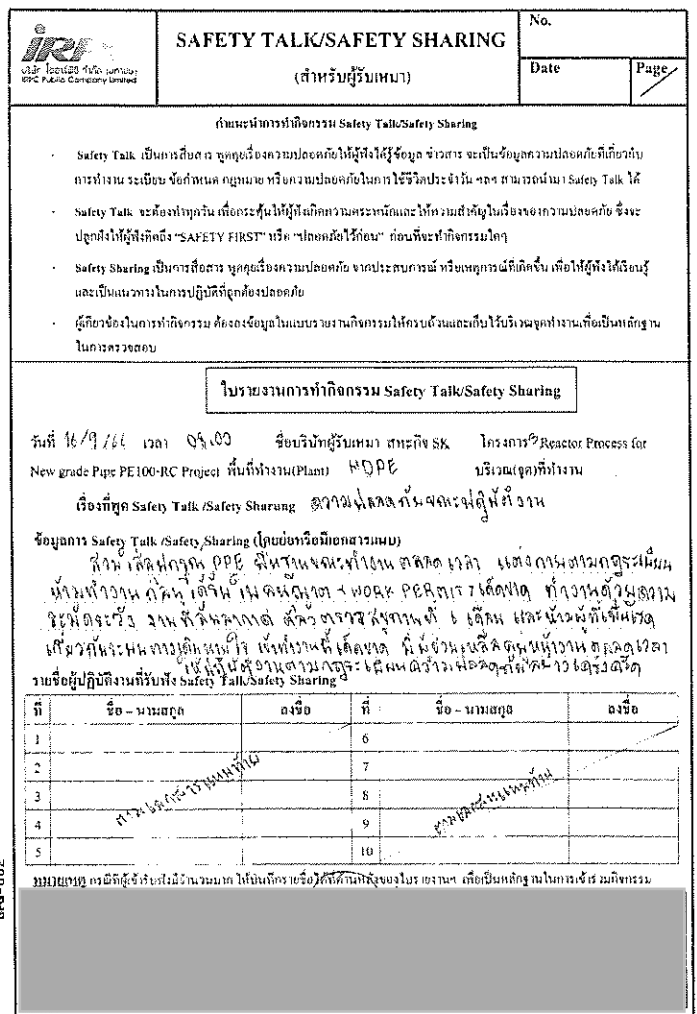 IRPC
บริษัท ไออาร์พีซี จำกัด (มหาชน)
IRPC Public Company Limited
SAFETY TALK/SAFETY SHARING
(สำหรับผู้รับเหมา)
No.
Date
Page
คำแนะนำการทำกิจกรรม Safety Talk/Safety Sharing
- Safety Talk เป็นการสื่อสาร พูดคุยเรื่องความปลอดภัยให้ผู้ฟังได้รู้ข้อมูล ข่าวสาร จะเป็นข้อมูลความปลอดภัยที่เกี่ยวกับ
การทำงาน ระเบียบ ข้อกำหนด กฎหมาย หรือความปลอดภัยในการใช้ชีวิตประจำวัน ฯลฯ สามารถนำมา Safety Talk ได้
- Safety Talk จะต้องทำทุกวัน เพื่อกระตุ้นให้ผู้ฟังเกิดความตระหนักและให้ความสำคัญในเรื่องของความปลอดภัย ซึ่งจะ
ปลูกฝังให้ผู้ฟังคิดถึง "SAFETY FIRST" หรือ "ปลอดภัยไว้ก่อน" ก่อนที่จะทำกิจกรรมใดๆ
- Safety Sharing เป็นการสื่อสาร พูดคุยเรื่องความปลอดภัย จากประสบการณ์ หรือเหตุการณ์ที่เกิดขึ้น เพื่อให้ผู้ฟังได้เรียนรู้
และเป็นแนวทางในการปฏิบัติที่ถูกต้องปลอดภัย
- ผู้เกี่ยวข้องในการทำกิจกรรม ต้องลงข้อมูลในแบบรายงานกิจกรรมให้ครบถ้วนและเก็บไว้บริเวณจุดทำงานเพื่อเป็นหลักฐาน
ในการตรวจสอบ
ใบรายงานการทำกิจกรรม Safety Talk/Safety Sharing
วันที่ 16/9/66 เวลา 08.00 ชื่อบริษัทผู้รับเหมา สหะกิจ SK โครงการ Reactor Process for
New grade Pipe PE100-RC Project พื้นที่ทำงาน(Plant) HDPE บริเวณ(จุด)ที่ทำงาน
เรื่องที่พูด Safety Talk /Safety Sharung ความปลอดภัยขณะปฏิบัติงาน
ข้อมูลการ Safety Talk /Safety Sharing (โดยย่อหรือมีเอกสารแนบ)
สวมใส่อุปกรณ์ PPE พื้นฐานขณะทำงานตลอดเวลา แต่งกายตามกฎระเบียบ
ห้ามทำงานก่อนได้รับใบอนุญาต WORK PERMIT เด็ดขาด ทำงานด้วยความ
ระมัดระวัง งานที่อับอากาศ ต้องตรวจสุขภาพ 6 เดือน และห้ามผู้ที่เป็นโรค
เกี่ยวกับระบบทางเดินหายใจ เข้าทำงานที่เด็ดขาด มีผู้ช่วยเหลือ หน้างานตลอดเวลา
ให้ผู้ปฏิบัติงานตามกฎระเบียบความปลอดภัย อย่างเคร่งครัด
รายชื่อผู้ปฏิบัติงานที่รับฟัง Safety Talk/Safety Sharing
ที่ ชื่อ – นามสกุล ลงชื่อ ที่ ชื่อ – นามสกุล ลงชื่อ
1 6
2 7
3 8
4 9
5 10
ตามเอกสารแนบท้าย
ตามเอกสารแนบท้าย
หมายเหตุ กรณีที่ผู้เข้ารับฟังมีจำนวนมาก ให้บันทึกรายชื่อไว้ที่ด้านหลังของใบรายงานฯ เพื่อเป็นหลักฐานในการเข้าร่วมกิจกรรม